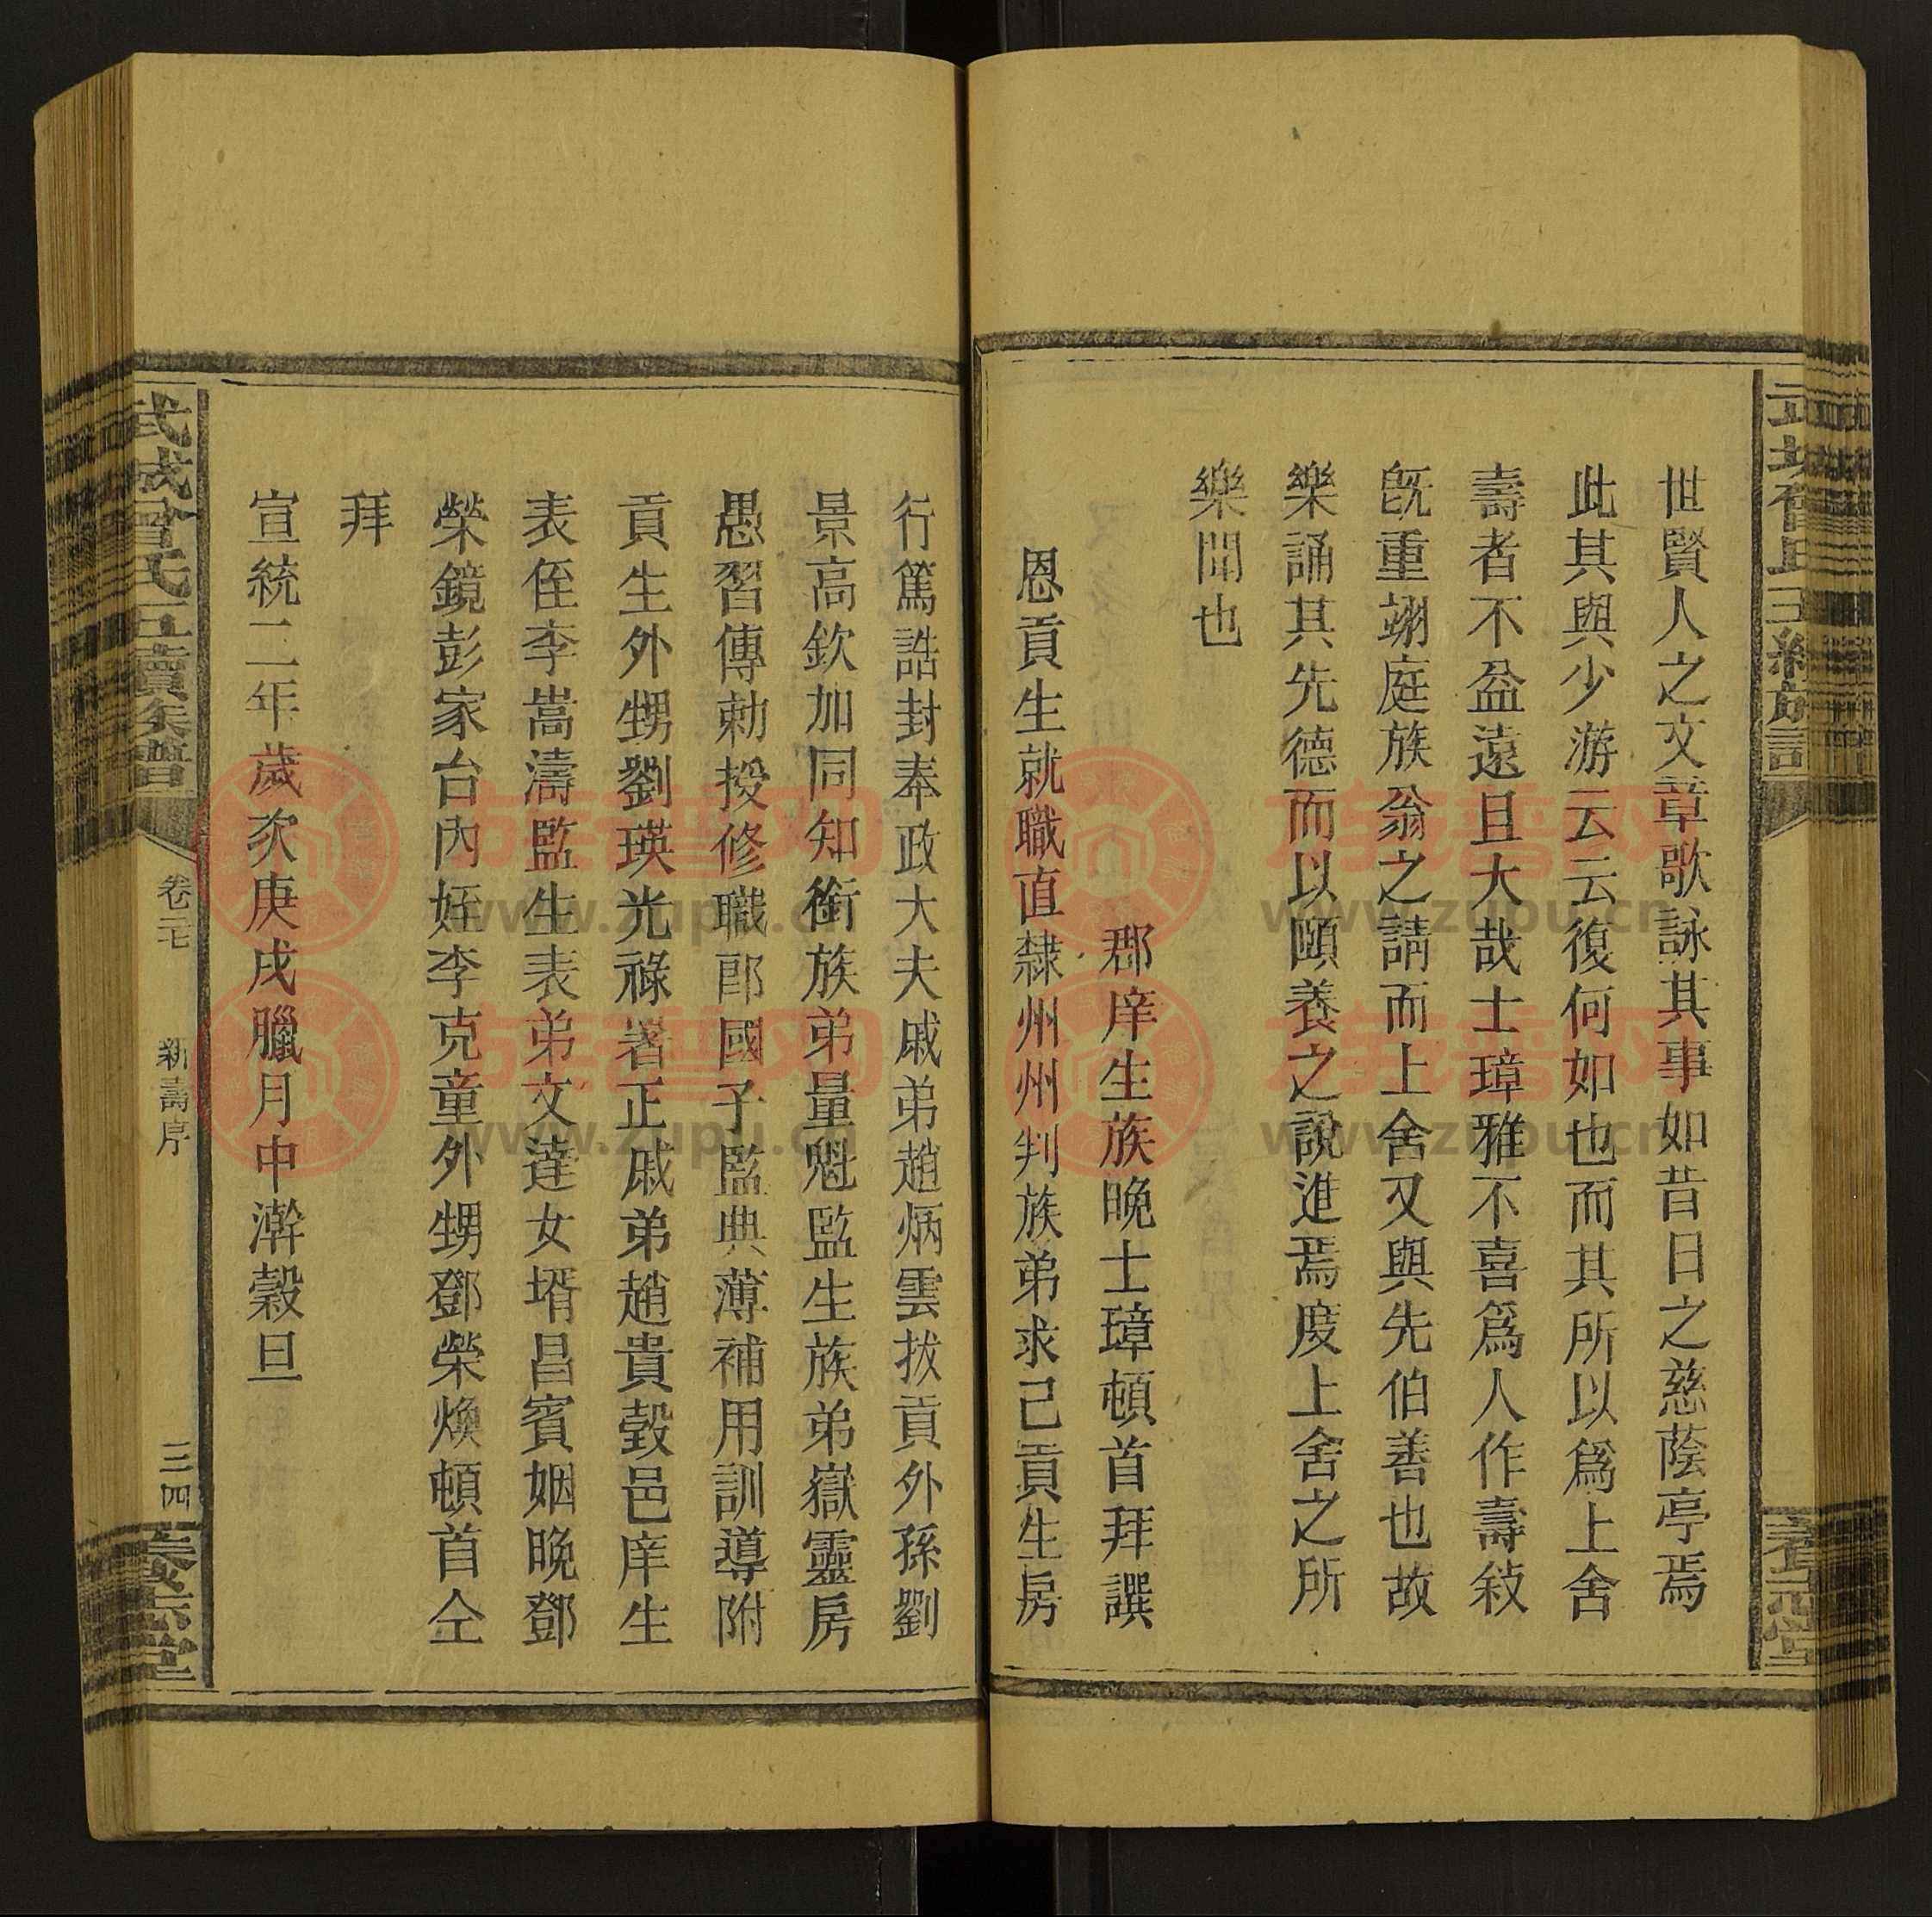 世賢人之文章歌詠其事如昔日之慈蔭亭焉
此其與少游云云復何如也而其所以爲上舍
壽者不益遠且大哉士璋雅不喜爲人作壽敍
旣重翊庭族翁之請而上舍又與先伯善也故
樂誦其先德而以頤養之說進焉度上舍之所
樂聞也
郡庠生族晚士璋頓首拜譔
恩貢生就職直隸州州判族弟求己貢生房
行篤誥封奉政大夫戚弟趙炳雲拔貢外孫劉
景高欽加同知銜族弟量魁監生族弟嶽靈房
愚習傳勅授修職郎國子監典薄補用訓導附
貢生外甥劉瑛光祿署正戚弟趙貴毂邑庠生
表侄李嵩濤監生表弟文達女壻昌賓姻晚鄧
榮鏡彭家台內姪李克童外甥鄧榮煥頓首仝
拜
宣統二年歲次庚戌臘月中澣穀旦
武城曾氏五續族譜
卷二七
新壽序
三四
族网
www.zupu.cn